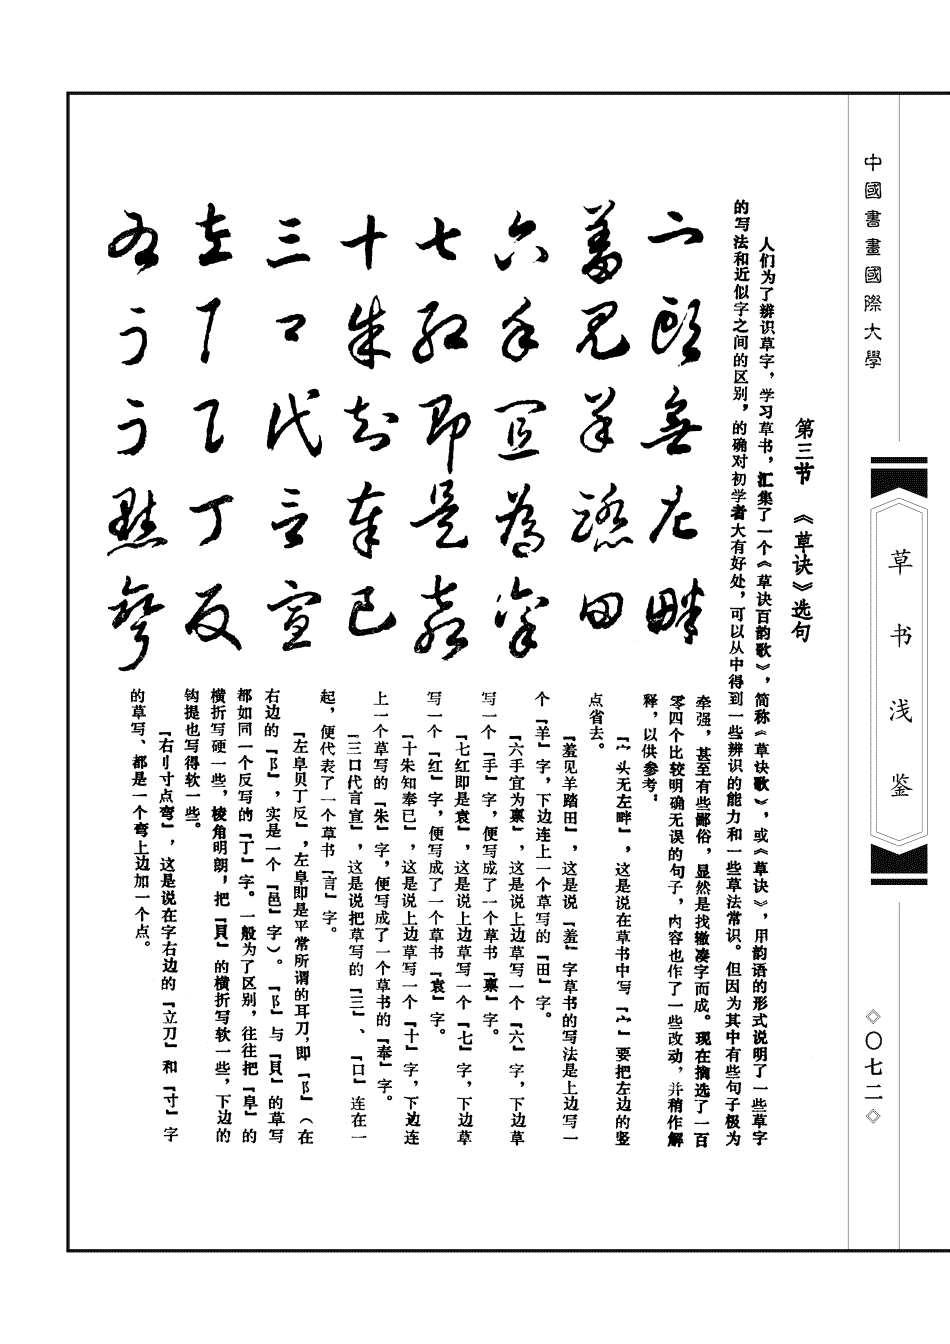 中國書畫國際大學
草书浅鉴
〇七二
第三节 《草诀》选句
人们为了辨识草字，学习草书，汇集了一个《草诀百韵歌》，简称《草诀歌》，或《草诀》，用韵语的形式说明了一些草字
的写法和近似字之间的区别，的确对初学者大有好处，可以从中得到一些辨识的能力和一些草法常识。但因为其中有些句子极为
牵强，甚至有些鄙俗，显然是找辙凑字而成。现在摘选了一百
零四个比较明确无误的句子，内容也作了一些改动，并稍作解
释，以供参考。
宀头无左畔
羞见羊踏田
六手宜为禀
七红即是袁
十朱知奉已
三口代言宣
左阜贝丁反
右刂寸点弯
『宀头无左畔』，这是说在草书中写『宀』要把左边的竖
点省去。
『羞见羊踏田』，这是说『羞』字草书的写法是上边写一
个『羊』字，下边连上一个草写的『田』字。
『六手宜为禀』，这是说上边草写一个『六』字，下边草
写一个『手』字，便写成了一个草书『禀』字。
『七红即是袁』，这是说上边草写一个『七』字，下边草
写一个『红』字，便写成了一个草书『袁』字。
『十朱知奉已』，这是说上边草写一个『十』字，下边连
上一个草写的『朱』字，便写成了一个草书的『奉』字。
『三口代言宣』，这是说把草写的『三』、『口』连在一
起，便代表了一个草书『言』字。
『左阜贝丁反』，左阜即是平常所谓的耳刀，即『阝』（在
右边的『阝』，实是一个『邑』字）。『阝』与『貝』的草写
都如同一个反写的『丁』字。一般为了区别，往往把『阜』的
横折写硬一些，棱角明朗，把『貝』的横折写软一些，下边的
钩提也写得软一些。
『右刂寸点弯』，这是说在字右边的『立刀』和『寸』字
的草写、都是一个弯上边加一个点。